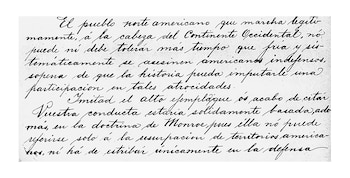 El pueblo norte americano que marcha legiti-
mamente, á la cabeza del Continente Occidental, nó
puede ni debe tolerar más tiempo que fria y sis-
tematicamente se asesinen americanos indefensos,
sopena de que la historia pueda imputarle una
participacion en tales atrocidades.
Imitad el alto ejemplo que ós acabo de citar
Vuestra conducta estaria solidamente basada, ade
más, en la doctrina de Monroe, pues élla nó puede
referirse solo á la usurpacion de territorios america-
nos, ni há de estribar únicamente en la defensa